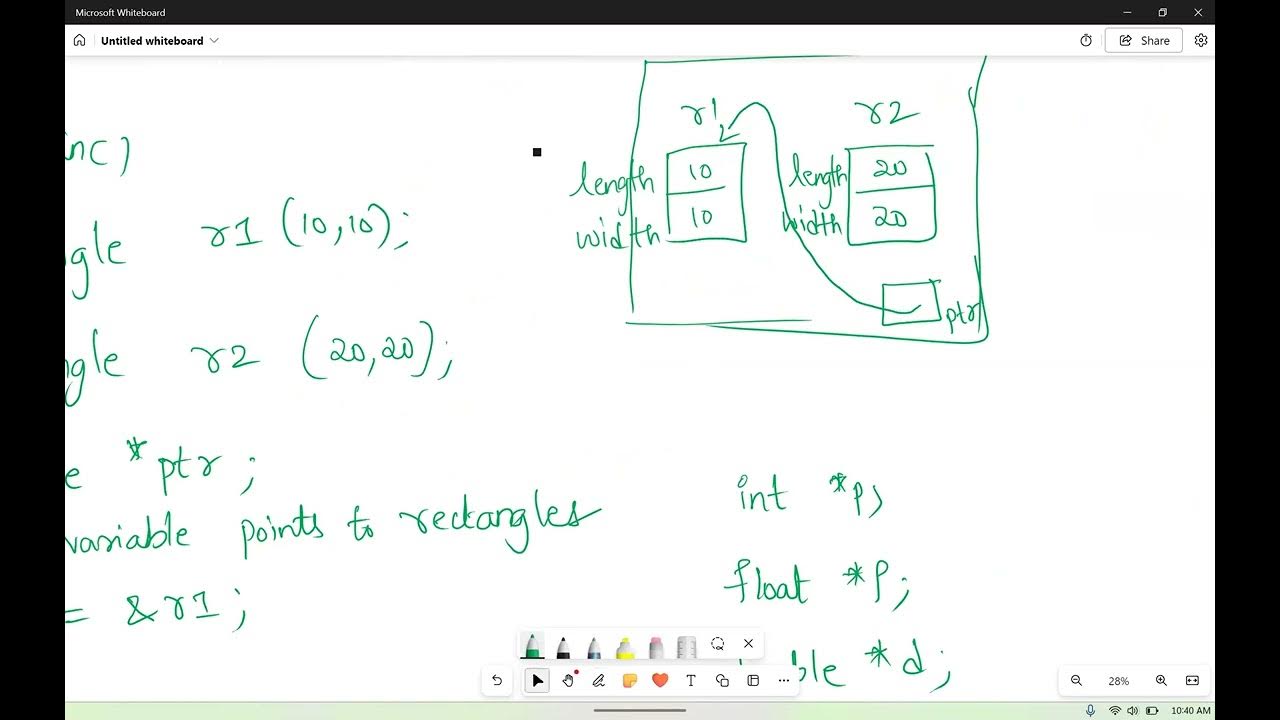 Microsoft Whiteboard
Untitled whiteboard
Share
inc)
ngle r1 (10,10);
ngle r2 (20,20);
e *ptr ;
variable points to rectangles
= &r1;
r1 r2
length 10 length 20
width 10 width 20
ptr
int *p;
float *f;
ble *d;
T
28%
10:40 AM